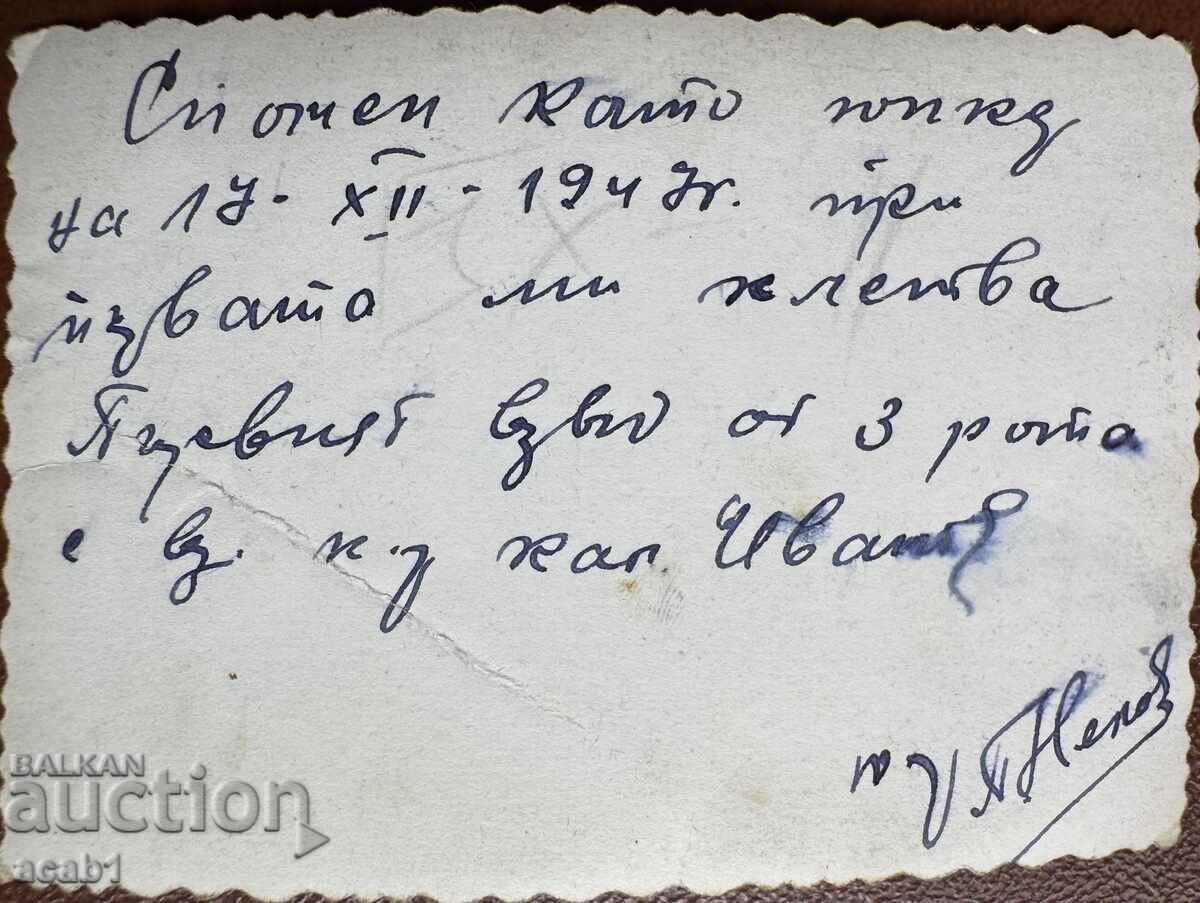 Спомен като юнкер
на 17. XII. 1947г. при
ми клетва
взвод от 3 рота
с вз. к-р кап. Иванов
BALKAN
auction
acab1